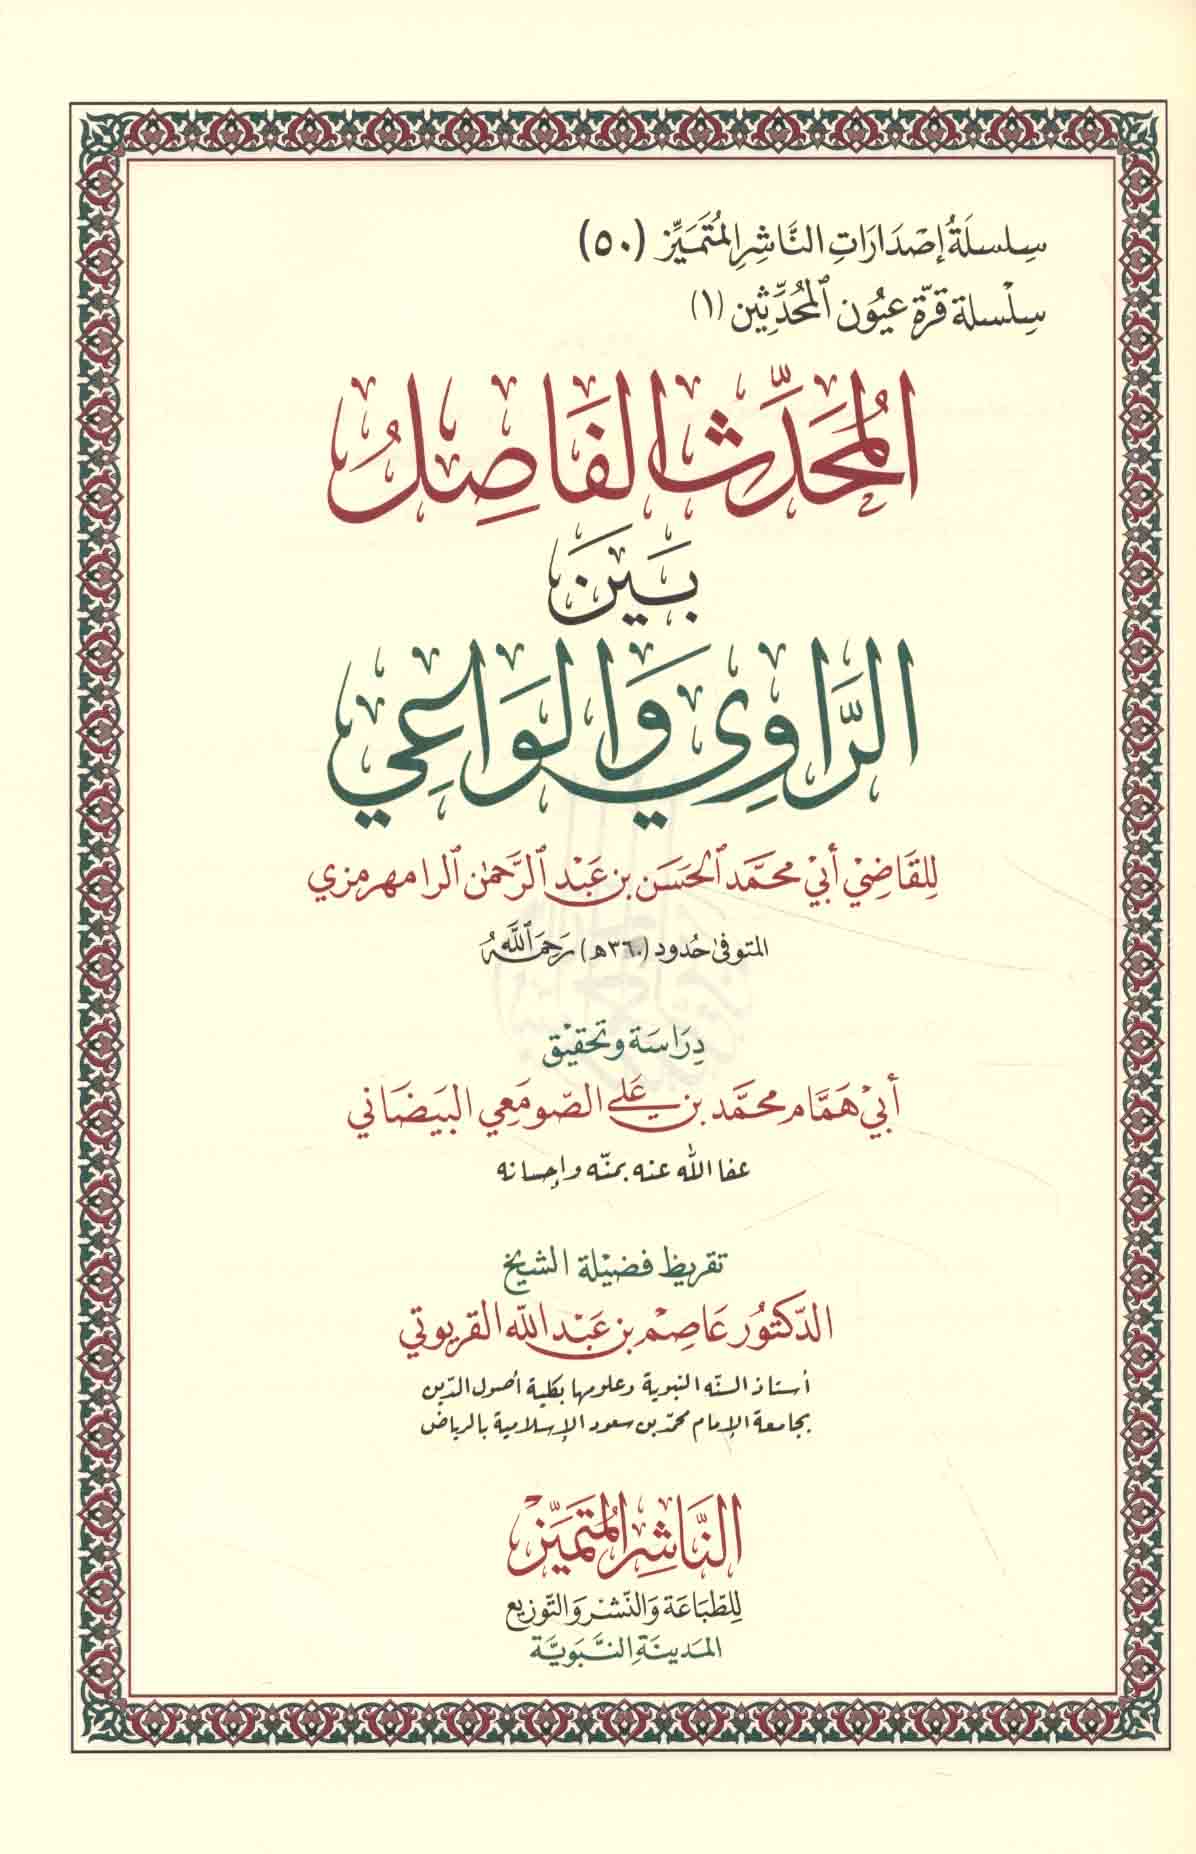 سِلسلَةُ إصْدَارَاتِ النَّاشِرِ المُتَميِّز (٥٠)
سِلْسلة قرّة عيُون المُحدِّثِين (١)
المُحَدِّث الفَاصِلُ
بَينَ
الرَّاوِي وَالوَاعِي
لِلقَاضِيْ أبيْ محمَّد الحَسَن بن عَبْد الرَّحمٰن الرامهرمزي
المتوفى حُدود (٣٦٠هـ) رَحِمَهُ اللَّهُ
دِرَاسَة وتحقيْق
أبيْ هَمَّام محمَّد بن عَلي الصّومَعي البَيضَاني
عفا الله عنه بمنّه وإحسانه
تقريظ فضيْلة الشيخ
الدّكتُور عَاصِم بن عَبْد اللّه القريوتي
أستاذ السنّه النبوية وعلومها بكلية أصول الدّين
بجامعة الإمام محمّد بن سعود الإسلامية بالرياض
النَّاشِر المُتَميِّز
لِلطّبَاعَة وَالنّشْر وَالتّوزيع
المَدينَة النَّبَويَّة